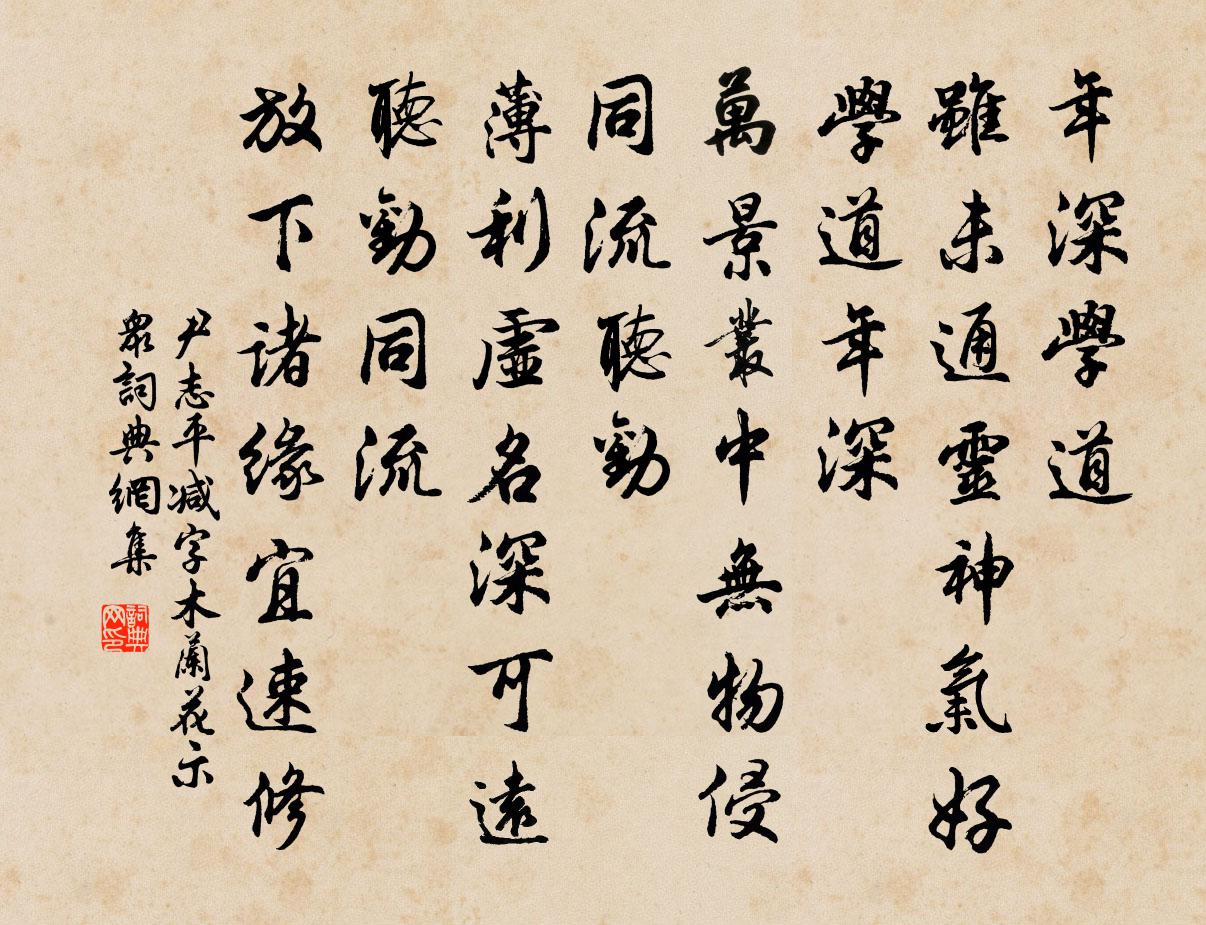 年深學道
雖未通靈神氣好
學道年深
萬景叢中無物侵
同流聽勸
薄利虛名深可遠
聽勸同流
放下諸緣宜速修
尹志平減字木蘭花示
眾詞典網集
詞典
网印